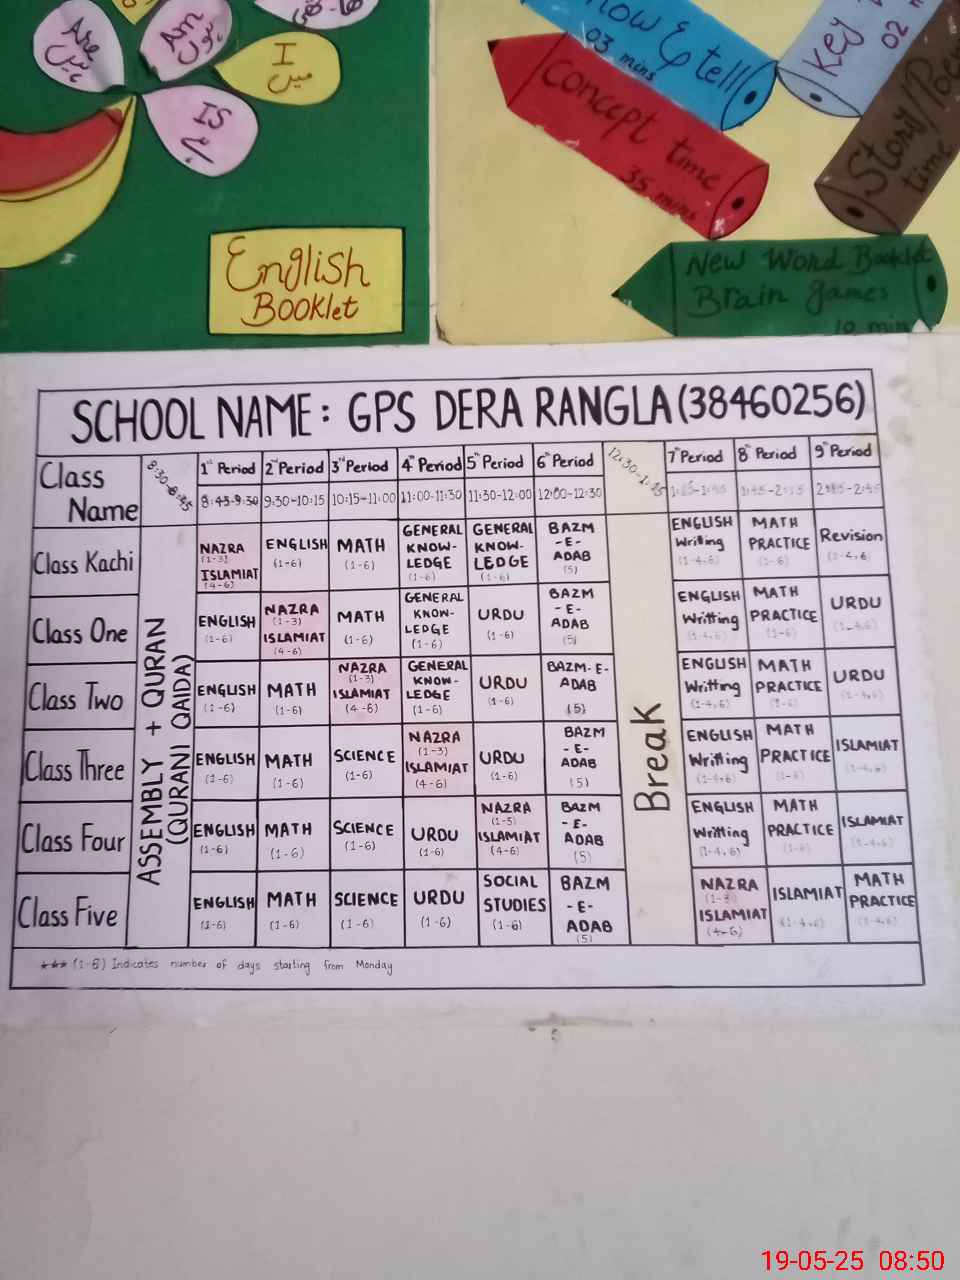 Are
ہیں
Am
ہوں
I
میں
IS
ہے
English
Booklet
how & tell
03 mins
Key
02
concept time
35 mins
Story/Poem
time
New Word Booklet
Brain games
10 min
SCHOOL NAME: GPS DERA RANGLA (38460256)
Class Name
8:30-8:45
1st Period
2nd Period
3rd Period
4th Period
5th Period
6th Period
12:30-1:15
7th Period
8th Period
9th Period
8:45-9:30
9:30-10:15
10:15-11:00
11:00-11:30
11:30-12:00
12:00-12:30
1:15-1:45
1:45-2:15
2:15-2:45
ASSEMBLY + QURAN
(QURANI QAIDA)
Break
Class Kachi
NAZRA (1-3) ISLAMIAT (4-6)
ENGLISH (1-6)
MATH (1-6)
GENERAL KNOW-LEDGE (1-6)
GENERAL KNOW-LEDGE (1-6)
BAZM -E- ADAB (5)
ENGLISH Writing (1-4,6)
MATH PRACTICE (1-6)
Revision (1-4,6)
Class One
ENGLISH (1-6)
NAZRA (1-3) ISLAMIAT (4-6)
MATH (1-6)
GENERAL KNOW-LEDGE (1-6)
URDU (1-6)
BAZM -E- ADAB (5)
ENGLISH Writting (1-4,6)
MATH PRACTICE (1-6)
URDU (1-4,6)
Class Two
ENGLISH (1-6)
MATH (1-6)
NAZRA (1-3) ISLAMIAT (4-6)
GENERAL KNOW-LEDGE (1-6)
URDU (1-6)
BAZM-E-ADAB (5)
ENGLISH Writting (1-4,6)
MATH PRACTICE (1-6)
URDU (1-4,6)
Class Three
ENGLISH (1-6)
MATH (1-6)
SCIENCE (1-6)
NAZRA (1-3) ISLAMIAT (4-6)
URDU (1-6)
BAZM -E- ADAB (5)
ENGLISH Writting (1-4,6)
MATH PRACTICE (1-6)
ISLAMIAT (1-4,6)
Class Four
ENGLISH (1-6)
MATH (1-6)
SCIENCE (1-6)
URDU (1-6)
NAZRA ISLAMIAT (4-6)
BAZM -E- ADAB (5)
ENGLISH Writting (1-4,6)
MATH PRACTICE (1-6)
ISLAMIAT (1-4,6)
Class Five
ENGLISH (1-6)
MATH (1-6)
SCIENCE (1-6)
URDU (1-6)
SOCIAL STUDIES (1-6)
BAZM -E- ADAB (5)
NAZRA (1-3) ISLAMIAT (4-6)
ISLAMIAT (1-4,6)
MATH PRACTICE (1-4,6)
*** (1-6) Indicates number of days starting from Monday
19-05-25 08:50